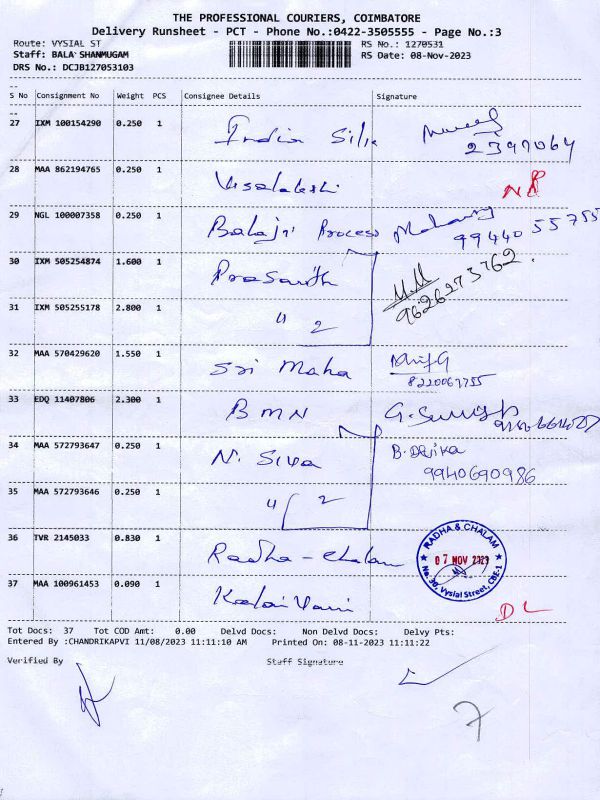 THE PROFESSIONAL COURIERS, COIMBATORE
Delivery Runsheet - PCT - Phone No.:0422-3505555 - Page No.:3
Route: VYSIAL ST RS No.: 1270531
Staff: BALA SHANMUGAM RS Date: 08-Nov-2023
DRS No.: DCJB127053103
S No Consignment No Weight PCS Consignee Details Signature
27 IXM 100154290 0.250 1 India Silk 2397064
28 MAA 862194765 0.250 1 Visalakshi NR
29 NGL 100007358 0.250 1 Balaji Process 99440 55755
30 IXM 505254874 1.600 1 Prasanth M.M
9626273762.
31 IXM 505255178 2.800 1 " 2
32 MAA 570429620 1.550 1 Sri Maha
33 EDQ 11407806 2.300 1 BMN G. Suresh
34 MAA 572793647 0.250 1 N. Siva B. Devika
9940690986
35 MAA 572793646 0.250 1 " 2
36 TVR 2145033 0.830 1 Radha - Chalam
RADHA & CHALAM
07 NOV 2023
No. 30, Vysial Street, CBE-1
37 MAA 100961453 0.090 1 Kalai Vani DL
Tot Docs: 37 Tot COD Amt: 0.00 Delvd Docs: Non Delvd Docs: Delvy Pts:
Entered By :CHANDRIKAPVI 11/08/2023 11:11:10 AM Printed On: 08-11-2023 11:11:22
Verified By Staff Signature
7